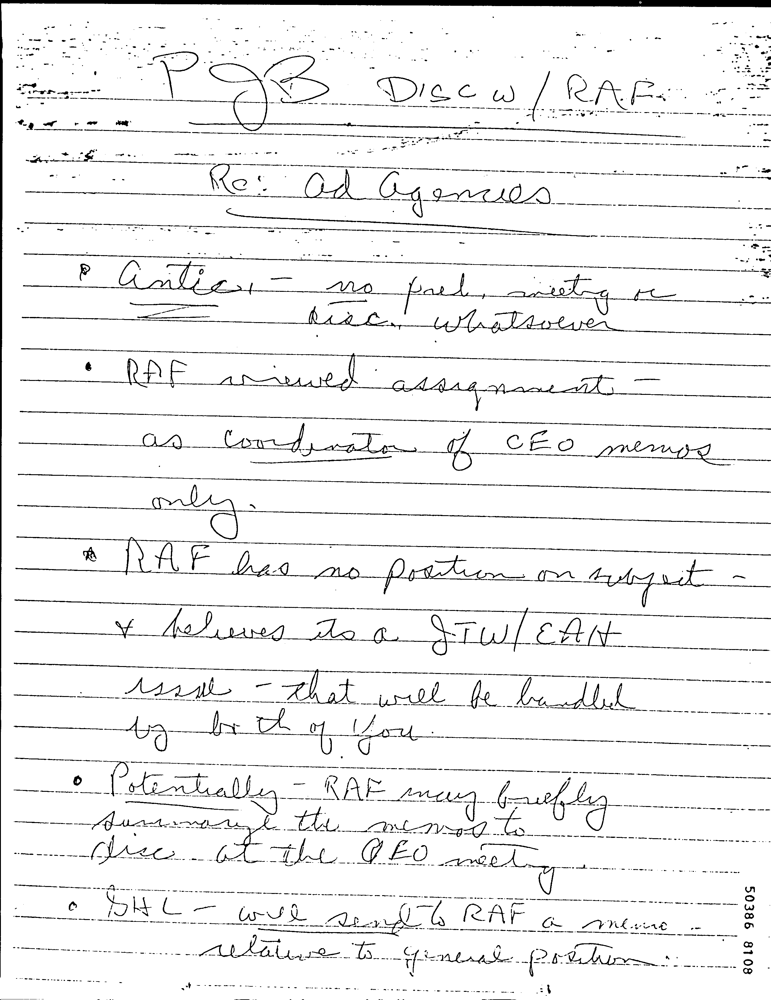 PJB Disc w/ RAF
Re: Ad Agencies
Antic. - no pred. meeting or
disc. whatsoever
• RAF viewed assignment -
as coordinator of CEO memos
only.
* RAF has no position on subject -
& believes its a JTW/EAH
issue - that will be handled
by both of you.
• Potentially - RAF may briefly
summarize the memos to
disc at the CEO meeting.
• - will send to RAF a memo -
relative to general position.
50386 8108